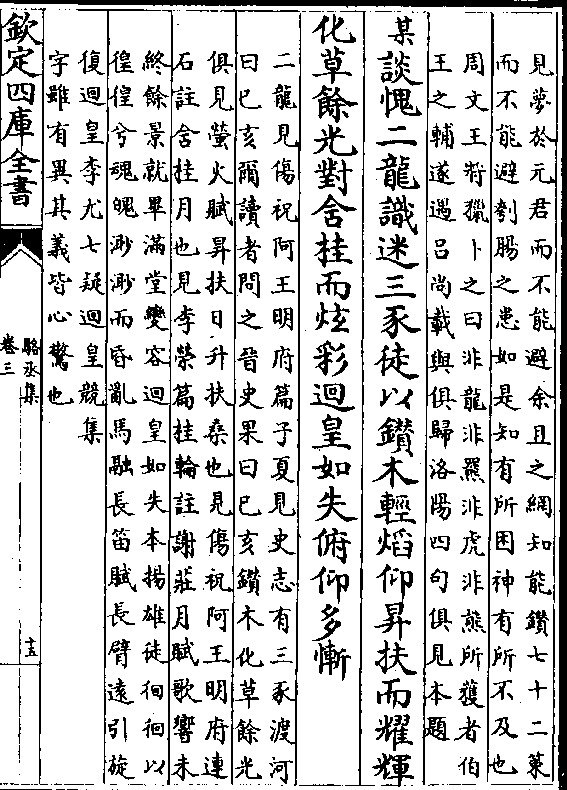 見夢於元君而不能避余且之網知能鑽七十二䇿
而不能避刳腸之患如是知有所困神有所不及也
周文王將獵卜之曰非龍非羆非虎非熊所獲者伯
王之輔遂遇吕尚載與俱歸洛陽四句俱見本題
某談愧二龍識迷三豕徒以鑽木輕熖仰昇扶而耀輝
化草餘光對舍桂而炫彩迴皇如失俯仰多慚
二龍見傷祝阿王明府篇子夏見史志有三豕渡河
曰已亥爾讀者問之晉史果曰已亥鑽木化草餘光
俱見螢火賦昇扶日升扶桑也見傷祝阿王明府連
石註舍桂月也見李榮篇桂輪註謝莊月賦歌響未
終餘景就畢滿堂變容迴皇如失本揚雄徒徊徊以
徨徨兮魂魄渺渺而昏亂馬融長笛賦長臂遠引旋
復迴皇李尤七疑迴皇競集
字雖有異其義皆心驚也
欽定四庫全書
駱丞集
卷三
十五